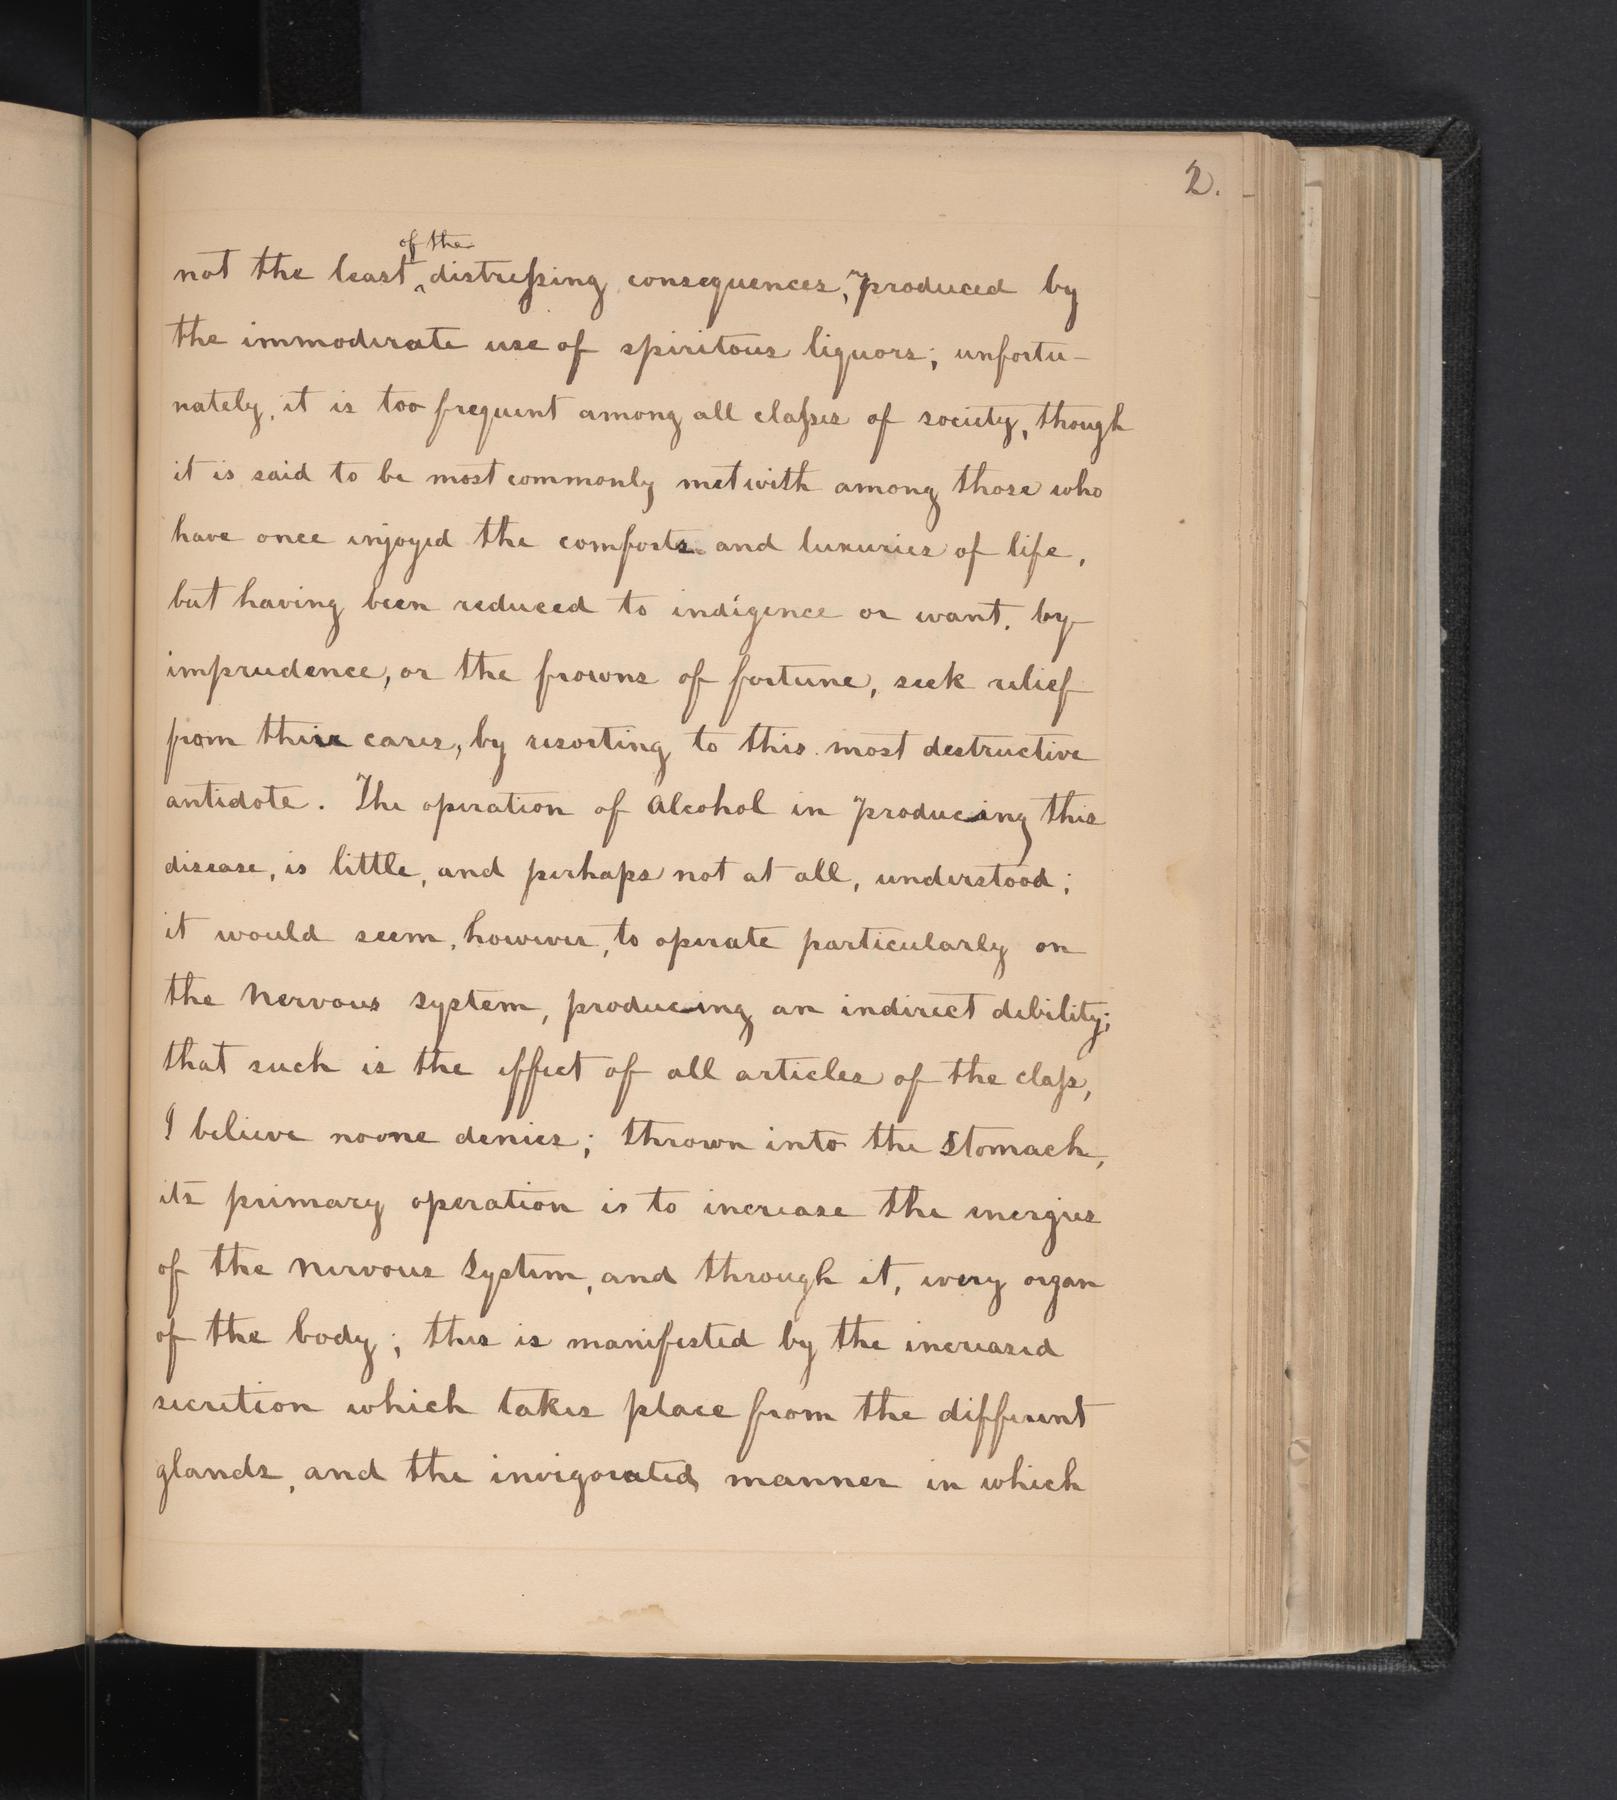 2.
of the
not the least ‸ distreſsing consequences, produced by
the immoderate use of spiritous liquors; unfortu-
nately, it is too frequent among all claſses of society, though
it is said to be most commonly met with among those who
have once injoyed the comforts and luxuries of life,
but having been reduced to indigence or want, by
imprudence, or the frowns of fortune, seek relief
from their cares, by resorting to this most destructive
antidote. The operation of Alcohol in producing this
disease, is little, and perhaps not at all, understood;
it would seem, however, to operate particularly on
the Nervous system, producing an indirect debility;
that such is the effect of all articles of the claſs,
I believe no one denies; thrown into the Stomach,
its primary operation is to increase the energies
of the Nervous System, and through it, every organ
of the body; this is manifested by the increased
secretion which takes place from the different
glands, and the invigorated manner in which